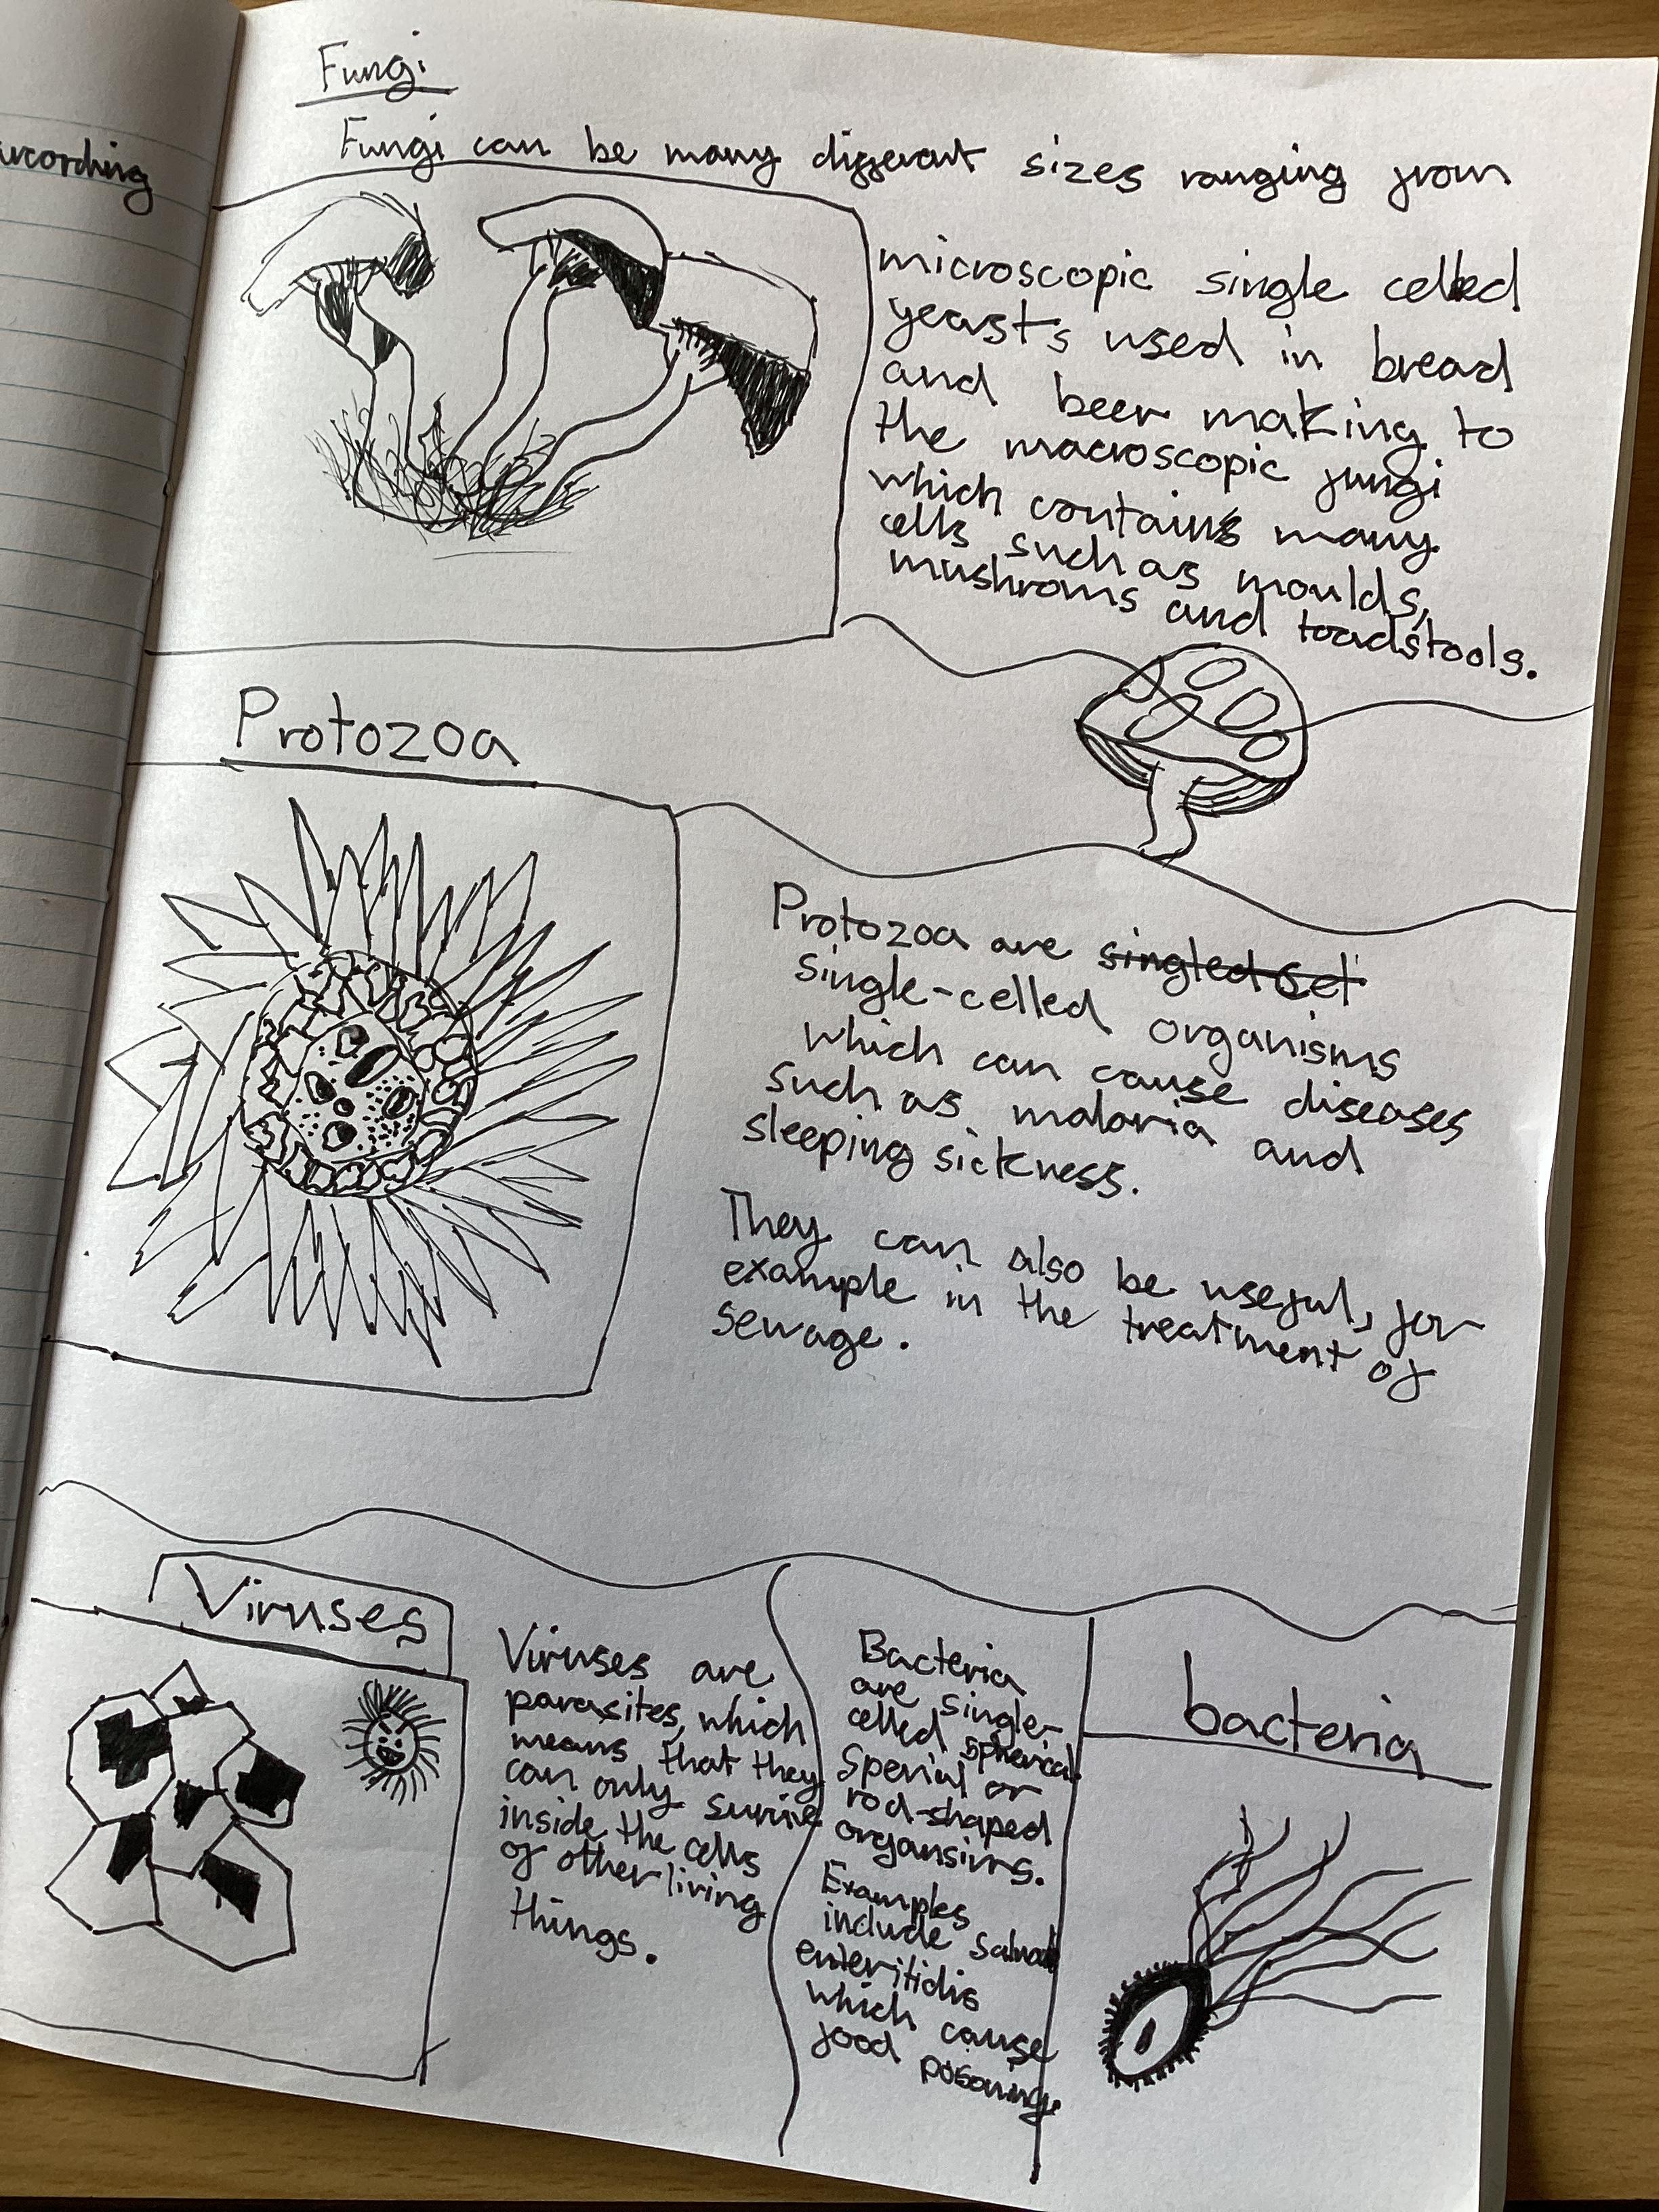 according
Fungi
Fungi can be many different sizes ranging from
microscopic single celled
yeasts used in bread
and beer making to
the macroscopic fungi
which contains many
cells such as moulds,
mushroms and toadstools.
Protozoa
Protozoa are singled cel
single-celled organisms
which can cause diseases
such as malaria and
sleeping sickness.
They can also be useful, for
example in the treatment of
sewage.
Viruses
Viruses are
parasites, which
means that they
can only survive
inside the cells
of other living
things.
Bacteria
are single-
celled spherical
sperial or
rod-shaped
organsims.
Examples
include
enteritidis
which cause
food poisoning.
bacteria